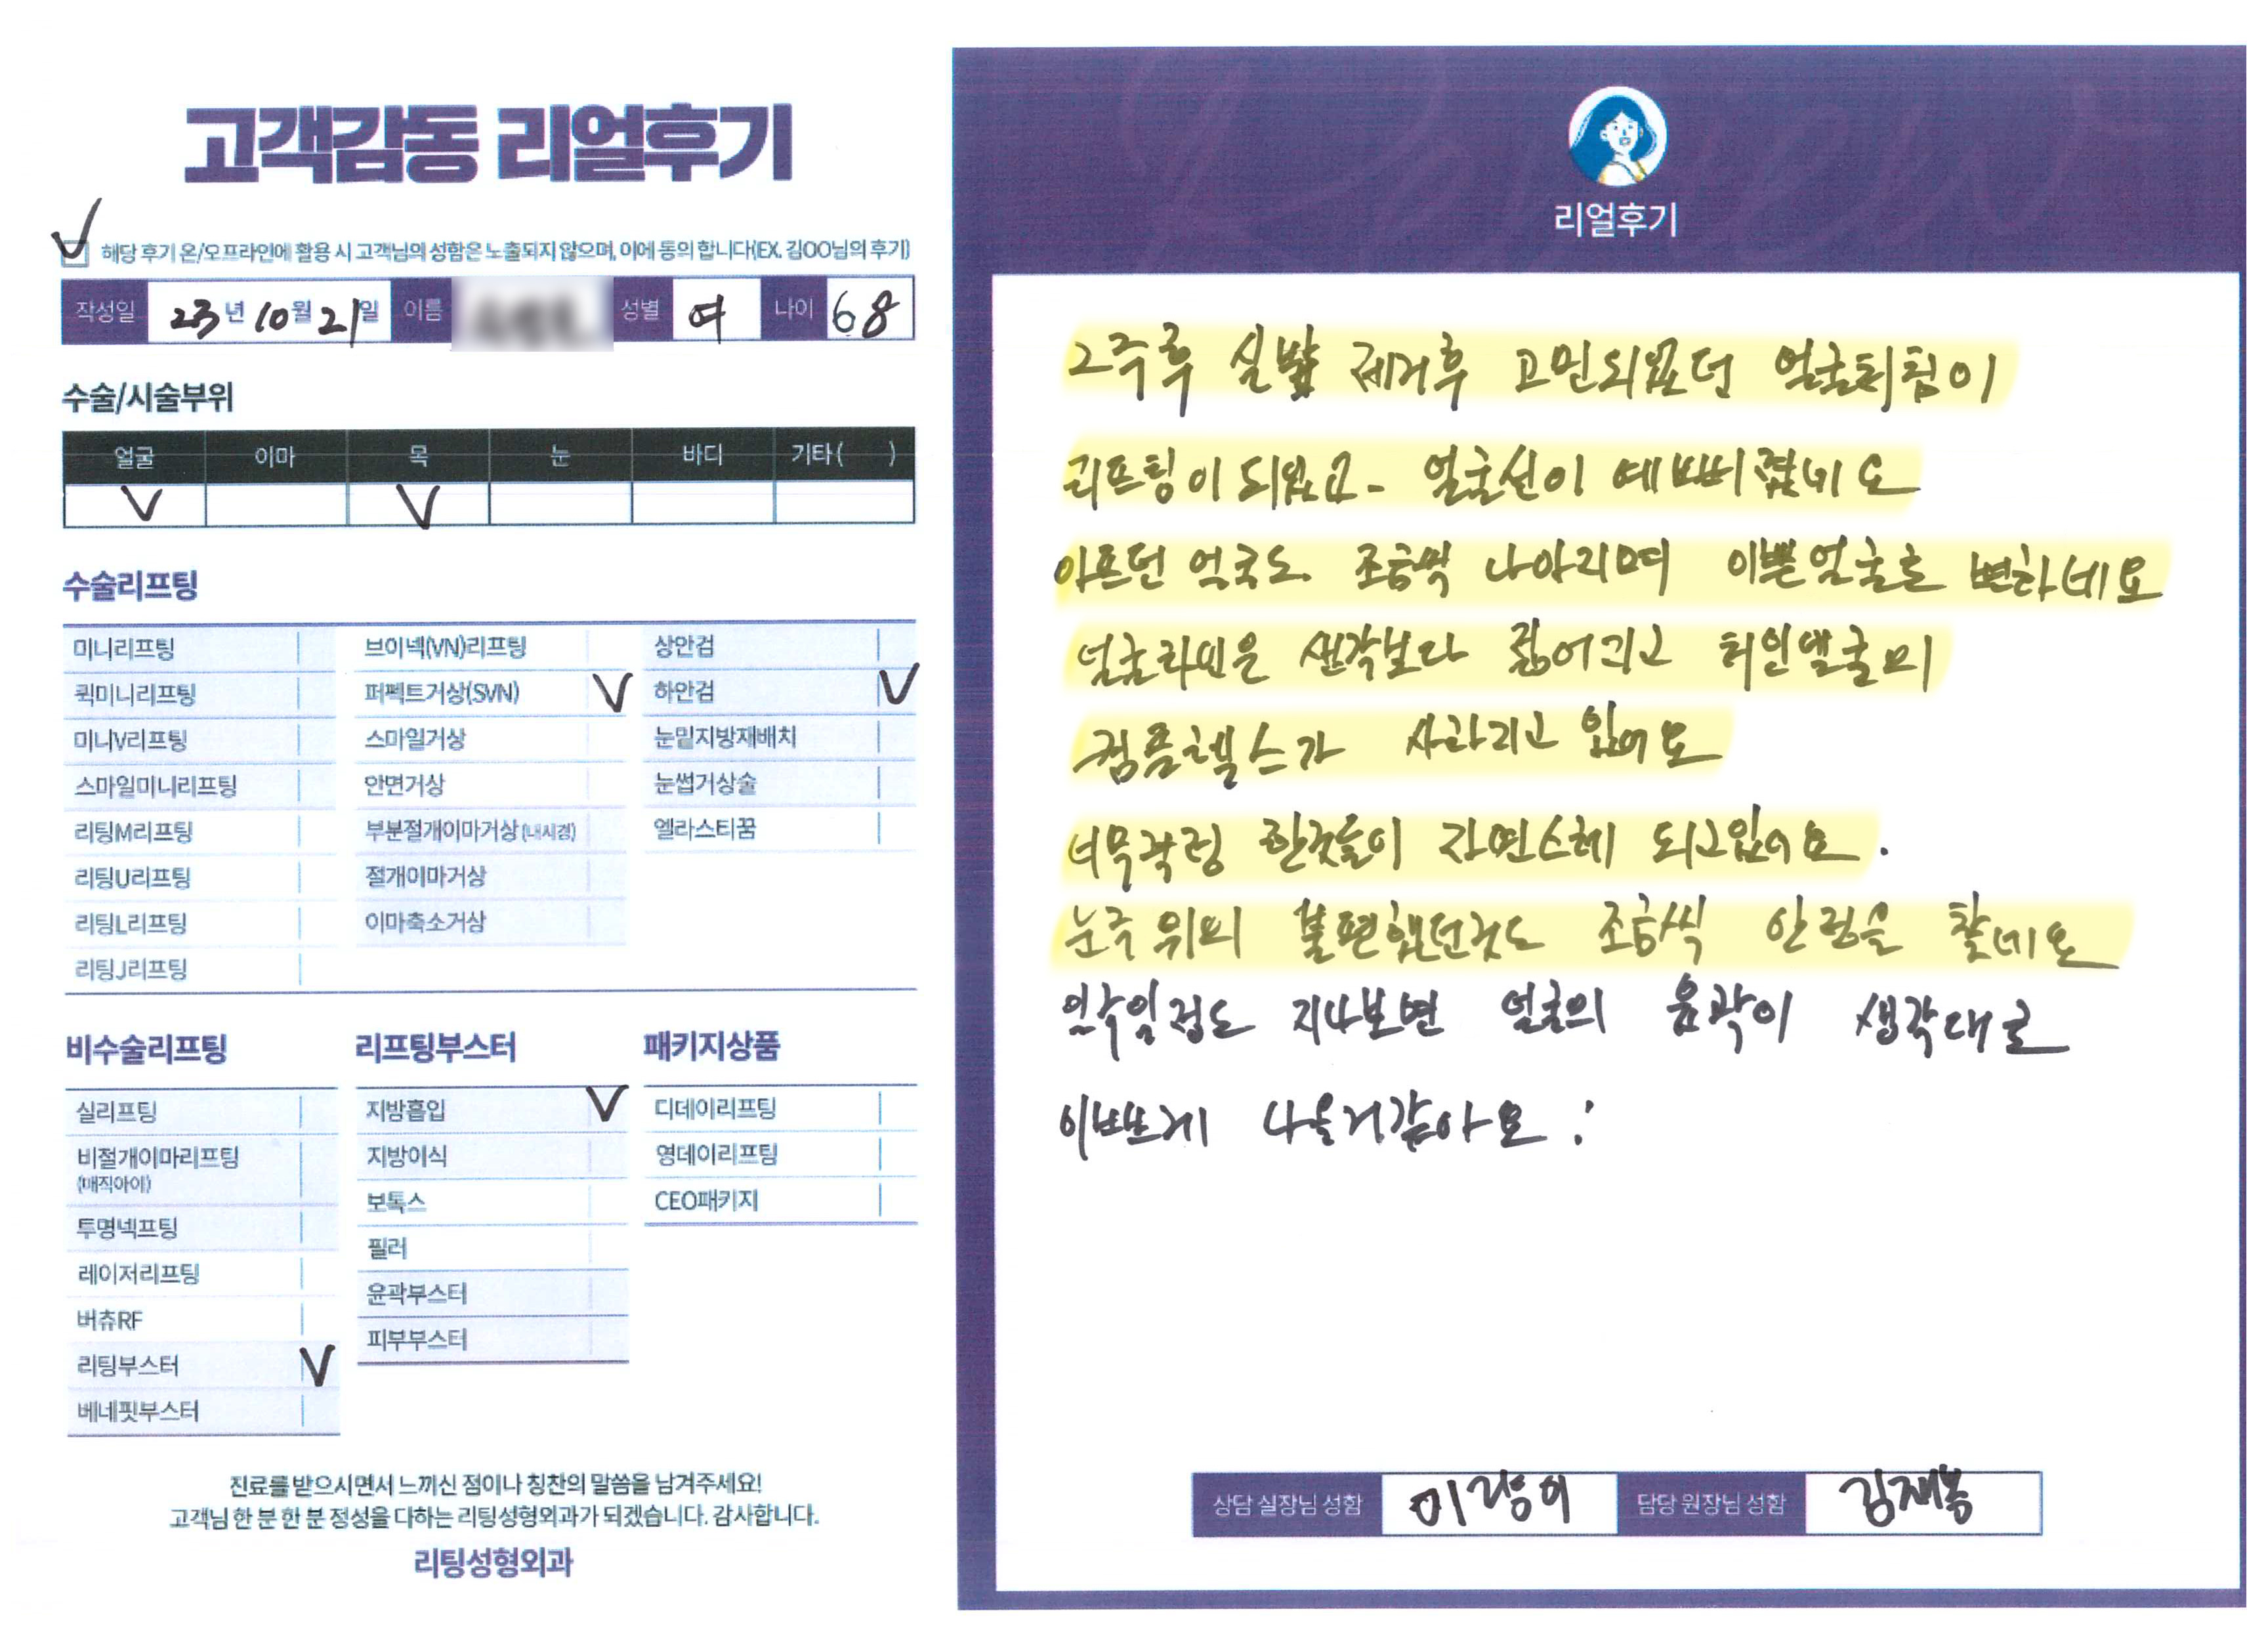 고객감동 리얼후기
해당 후기 온/오프라인에 활용 시 고객님의 성함은 노출되지 않으며, 이에 동의 합니다(EX. 김OO님의 후기)
작성일 23년 10월 21일 이름 성별 여 나이 68
수술/시술부위
얼굴 이마 목 눈 바디 기타( )
수술리프팅
미니리프팅 브이넥(VN)리프팅 상안검
퀵미니리프팅 퍼펙트거상(SVN) 하안검
미니V리프팅 스마일거상 눈밑지방재배치
스마일미니리프팅 안면거상 눈썹거상술
리팅M리프팅 부분절개이마거상(내시경) 엘라스티꿈
리팅U리프팅 절개이마거상
리팅L리프팅 이마축소거상
리팅J리프팅
비수술리프팅 리프팅부스터 패키지상품
실리프팅 지방흡입 디데이리프팅
비절개이마리프팅 지방이식 영데이리프팅
(매직아이)
보톡스 CEO패키지
투명넥프팅 필러
레이저리프팅 윤곽부스터
버츄RF 피부부스터
리팅부스터
베네핏부스터
진료를 받으시면서 느끼신 점이나 칭찬의 말씀을 남겨주세요!
고객님 한 분 한 분 정성을 다하는 리팅성형외과가 되겠습니다. 감사합니다.
리팅성형외과
리얼후기
2주후 실밥 제거후 고민되었던 얼굴쳐짐이
리프팅이 되었고- 얼굴선이 예뻐졌네요
아프던 얼굴도 조금씩 나아지며 이쁜얼굴로 변하네요
얼굴라인은 생각보다 젊어지고
컴플렉스가 사라지고 있어요
한것들이 자연스레 되고있어요.
눈주위의 불편했던것도 조금씩 안정을 찾네요
일주일정도 지나보면 얼굴의 윤곽이 생각대로
이쁘게 나올거같아요
상담 실장님 성함 담당 원장님 성함